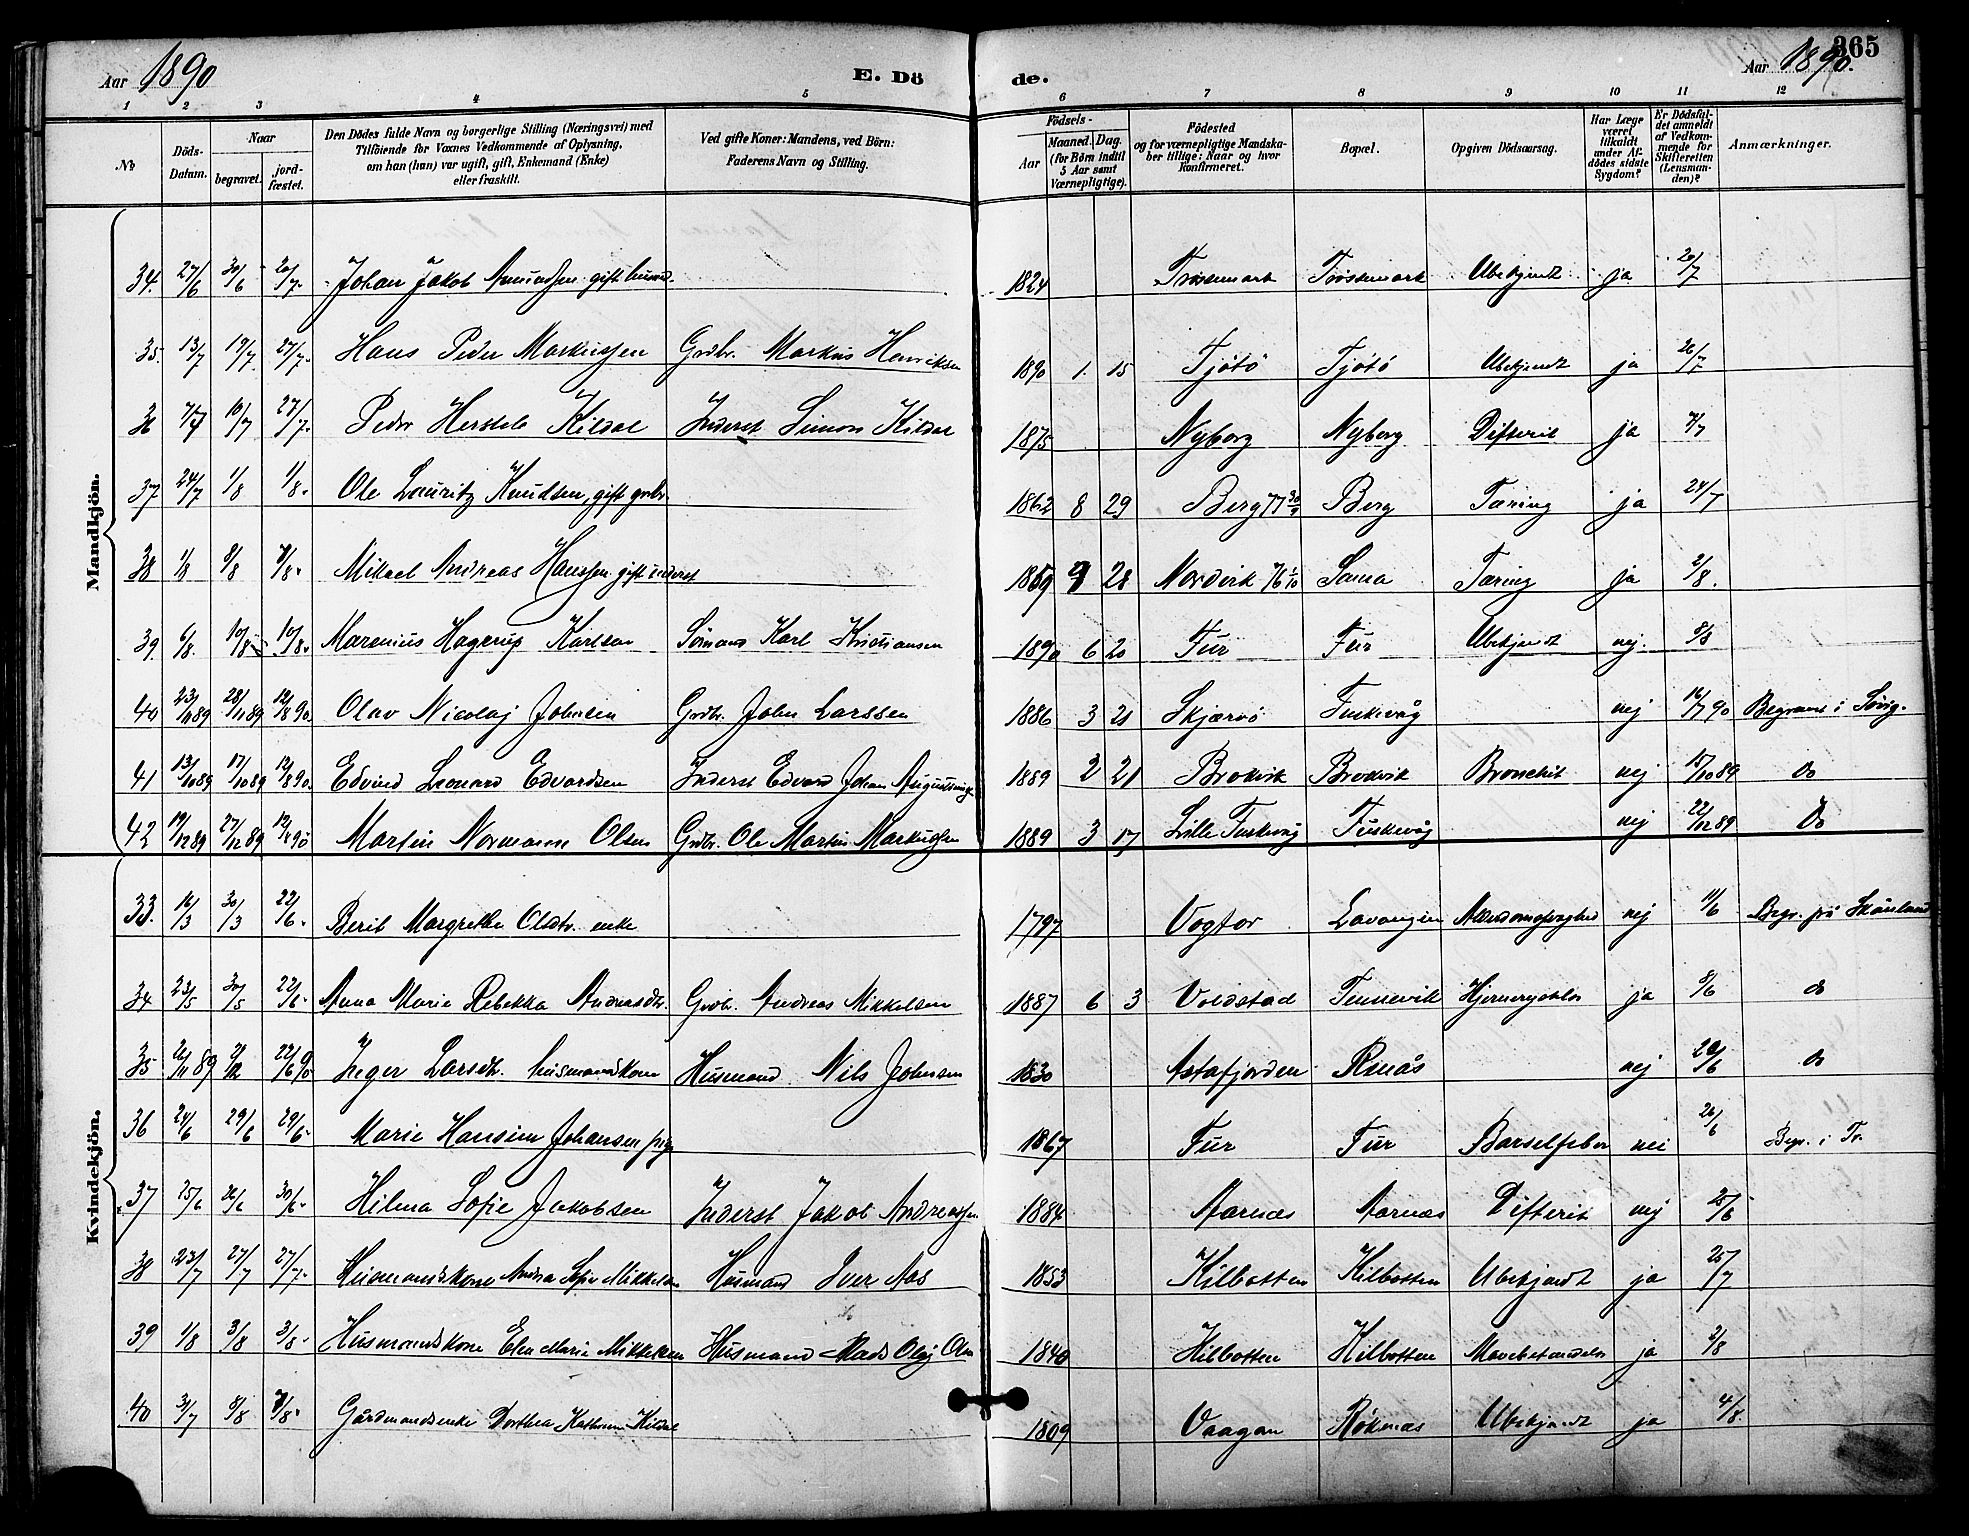 365
Aar 1890 E. Døde. Aar 1890.
1 2 3 4 5 6 7 8 9 10 11 12
No
Døds-Datum.
Naar
begravet.
jordfæstet.
Den Dødes fulde Navn og borgerlige Stilling (Næringsvei) med
Tilføiende for Voxnes Vedkommende af Oplysning,
om han (hun) var ugift, gift, Enkemand (Enke)
eller fraskilt.
Ved gifte Koner: Mandens, ved Børn:
Faderens Navn og Stilling.
Fødsels-
Aar
Maaned. Dag.
(for Børn indtil
5 Aar samt
Værnepligtige).
Fødested
og for værnepligtige Mandska-
ber tillige: Naar og hvor
konfirmeret.
Bopæl.
Opgiven Dødsaarsag.
Har Læge
været
tilkaldt
under Af-
dødes sidste
Sygdom?
Er Dødsfal-
det anmeldt
af Vedkom-
mende for
Skifteretten
(Lensman-
den)?
Anmærkninger.
Mandkjøn.
34. 27/6 30/6 20/7. Johan Jakob Amundsen gift husmd. 1824 Trøssemark Trøssemark Ubekjendt ja 20/7
35. 13/7 19/7. 27/7. Hans Peder Markussen Grdbr. Markus Henriksen 1890 1. 15 Tjøtø Tjøtø Ubekjendt ja 26/7
36 7/7 10/7 27/7. Peder Hersleb Kildal Inderst Simon Kildal 1875 Nyborg Nyborg Difterit ja 7/7
37 24/7 1/8 1/8. Ole Lauritz Knudsen, gift grdbr. 1862 8 29 Berg 77 30/9 Berg Tæring ja 24/7
38 1/8 8/8 8. Mikael Andreas Hanssen gift inderst 28 Nordvik 76 1/10 Sama Tæring ja 2/8.
39 6/8. 10/8 10/8. Marenius Hagerup Karlsen Karl Kristiansen 1890 6 20 Fur Fur Ubekjendt nej. 8/8
40 23/11 89 28/11 89 12/8 90. Olav Nicolaj Johnsen Grdbr. John Larssen 1886 3 21 Skjærvø Fuskevåg nej 16/7 90 Begravet i Sørvig.
41 13/10 89 17/10 89 12/8 90. Edvind Leonard Edvardsen Inderst Edvard Johan 1889 2 21 Brokvik Brokvik Bronchit nej 15/10 89 Do
42 19/12 89 27/12 89 12/8 90 Martin Normann Olsen Grdbr. Ole Martin Markussen 1889 3 17 Lille Fuskevåg Fuskevåg nej 22/12 89 Do
Kvindekjøn.
33. 16/3 30/3 22/6. Berit Margrethe Olsdtr. enke 1797 Vogfor Lavangen Alderdomssvaghed nej 11/6 Begr. på Skånland
34 23/5 30/5 22/6. Anna Marie Rebekka Andreasdtr. Grdbr. Andreas Mikkelsen 1887 6 3 Voldstad Tennevik ja 8/6 do
35 26/11 89 22/6 90 Inger Larsdtr. husmandskone Husmand Nils Johnsen 1830 Astafjorden Renås nej 20/6 do
36 24/6 29/6 29/6. Marie Hansine Johansen pige 1867 Fur Fur Barselfeber nei 26/6 Begr. i Tr.
37 25/6 26/6 30/6. Hilma Sofie Jakobsen Inderst Jakob Andreassen 1884 Aarnæs Aarnæs Difterit nej 25/6
38 23/7 27/7 27/7. Husmandskone Andrea Sofie Mikkelsen Husmand Iver Aas 1853 Kilbotten Kilbotten Ubekjendt ja 25/7
39 1/8 3/8 3/8. Husmandskone Elen Marie Mikkelsen Husmand Mads Olaj Olsen 1840 Kilbotten Kilbotten Mavebetændelse ja 2/8
40 31/7 8/8 8/8. Gårdmandsenke Dorthea Kildal 1809 Vaagan Røkenæs Ubekjendt ja 4/8.